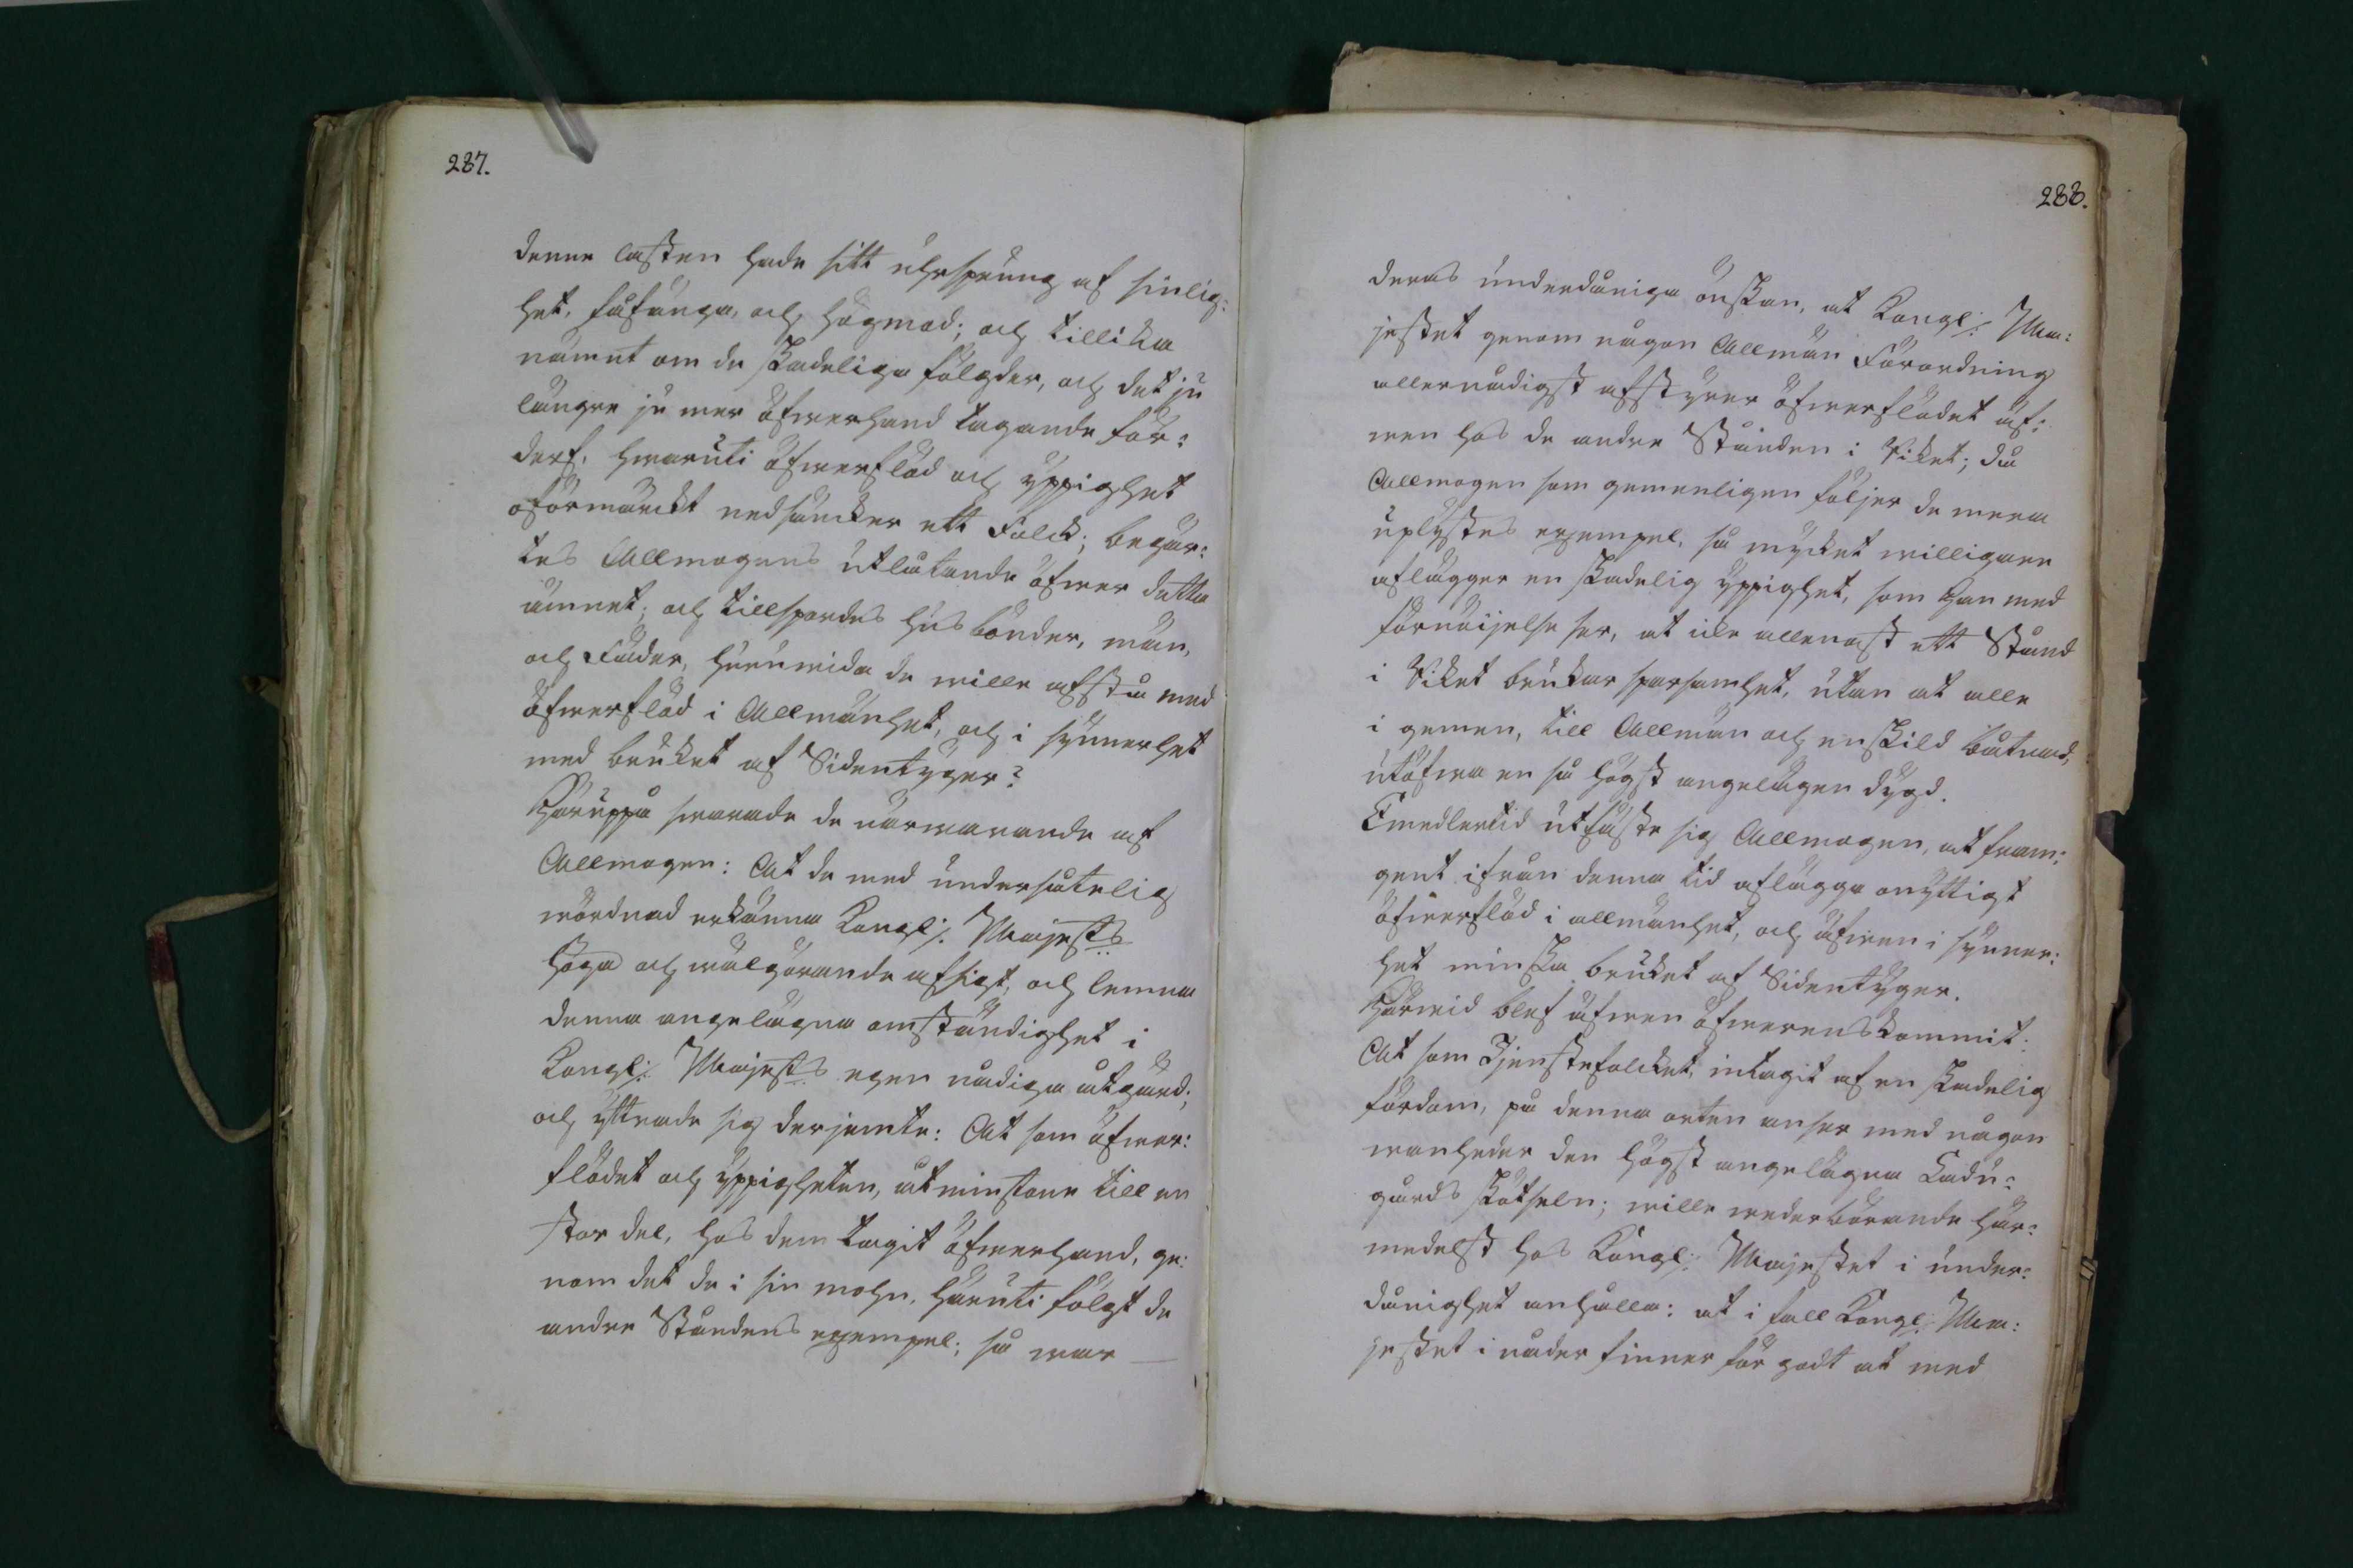 287.
denne lasten hade sitt uhrsprung af sinlig:
het, fåfänga, och högmod; och tillika
nämnt om de skadeliga fölgder, och det ju
längre ju mer öfwerhand tagande för:
derf, hwaruti öfwerflöd och yppighet
oförmärckt nedsäncker ett Folck; begär:
tes Allmogens utlåtande öfwer detta
ämnet; och tillspordes husbönder, män,
och Fäder, huruwida de wille afstå med
öfwerflöd i Allmänhet, och i synnerhet
med bruket af Sidentyger?
Häruppå swarade de närwarande af
Allmogen: At de med undersåtelig
wördnad erkänna Kongl. Majests
höga och wälgörande afsigt, och lemna
denna angelägna omständighet i
Kongl: Majests egen nådiga åtgärd;
och yttrade sig derjemte: At som öfwer:
flödet och yppigheten, åtminstone till en
stor del, hos dem tagit öfwerhand, ge:
nom det de i sin mohn, häruti fölgt de
andre Ståndens exempel; så war
288.
deras underdåniga önskan, at Kongl: Ma:
jestet genom någon Allmän Förordning
allernådigst afstyrer öfwerflödet äf:
wen hos de andre Stånden i Riket; då
Allmogen som gemenligen följer de mera
uplystes exempel, så mycket willigare
aflägger en skadelig yppighet, som han med
förnöijelse ser, at icke allenast ett Stånd
i Riket brukar sparsamhet, utan at alle
i gemen, till Allmän och enskild båtnad,
utöfwa en så högst angelägen dygd.
Emedlertid utfäste sig Allmogen, at fram:
gent ifrån denna tid aflägga onyttigt
öfwerflöd i allmänhet, och äfwen i synner:
het minska bruket af Sidentyger.
Härwid blef äfwen öfwerenskommit:
At som Tjenstefolcket, intagit af en skadelig
fördom, på denna orten anser med någon
wanheder den högst angelägna Ladu:
gårds skötseln; wille wederbörande här:
medelst hos Kongl: Majestet i under:
dånighet anhålla: at i fall Kongl: Ma:
jestet i nåder finner för godt at med